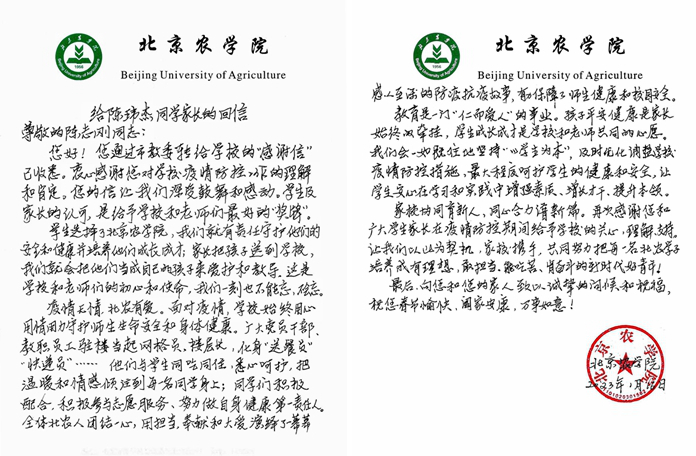 北京农学院
Beijing University of Agriculture
给陈玮杰同学家长的回信
尊敬的陈志刚同志：
您好！您通过市教委转给学校的“感谢信”
已收悉。衷心感谢您对学校疫情防控工作的理解
和肯定。您的信让我们深受鼓舞和感动。学生及
家长的认可，是给予学校和老师们最好的“奖赏”。
学生选择了北京农学院，我们就有责任守护他们的
安全和健康并培养他们成长成才；家长把孩子送到学校，
我们就会把他们当成自己的孩子来爱护和教导，这是
学校和老师们的初心和使命，我们一刻也不能忘、不敢忘。
疫情无情，北农有爱。面对疫情，学校始终用心
用情用力守护师生生命安全和身体健康。广大党员干部、
教职员工驻楼当起网格员、楼层长，化身“送餐员”
“快递员”……他们与学生同吃同住，悉心呵护，把
温暖和情感倾注到每名同学身上；同学们积极
配合，积极参与志愿服务、努力做自身健康第一责任人。
全体北农人团结一心，用担当、奉献和大爱演绎了
北京农学院
Beijing University of Agriculture
感人至深的防疫抗疫故事，保障了师生健康和校园安全。
教育是一门“仁而爱人”的事业。孩子平安健康是家长
始终的牵挂，学生成长成才是学校和老师共同的心愿。
我们会一如既往地坚持“以学生为本”，及时优化调整学校
疫情防控措施，最大程度呵护学生的健康和安全，让
学生安心在学习和实践中增强素质、增长才干、提升本领。
家校协同育新人，同心合力谱新篇。再次感谢您和
广大学生家长在疫情防控期间给予学校的关心、理解、支持。
让我们以此为契机，家校携手，共同努力把每一名北农学子
培养成有理想、敢担当、能吃苦、肯奋斗的新时代好青年！
最后，向您和您的家人致以诚挚的问候和祝福，
祝您春节愉快、阖家安康，万事如意！
北京农学院